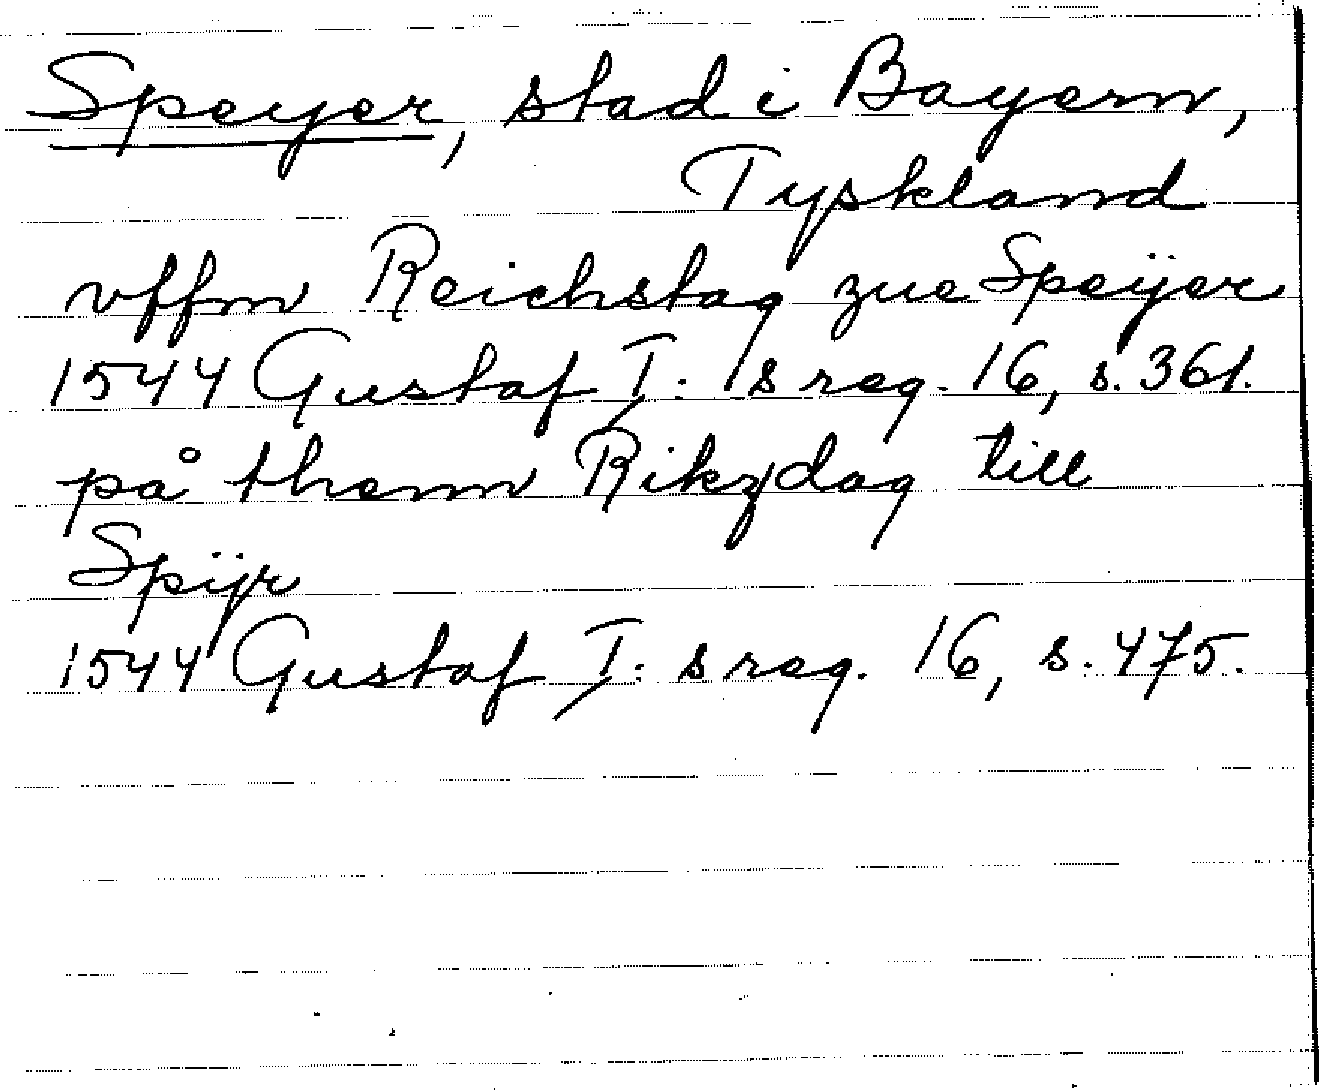 Speyer, stad i Bayern,
Tyskland
vffm Reichstag zue Speÿer
1544 Gustaf I: s reg. 16, s. 361.
på thenn Rikzdag till
Spÿr
1544 Gustaf I: s reg. 16, s. 475.